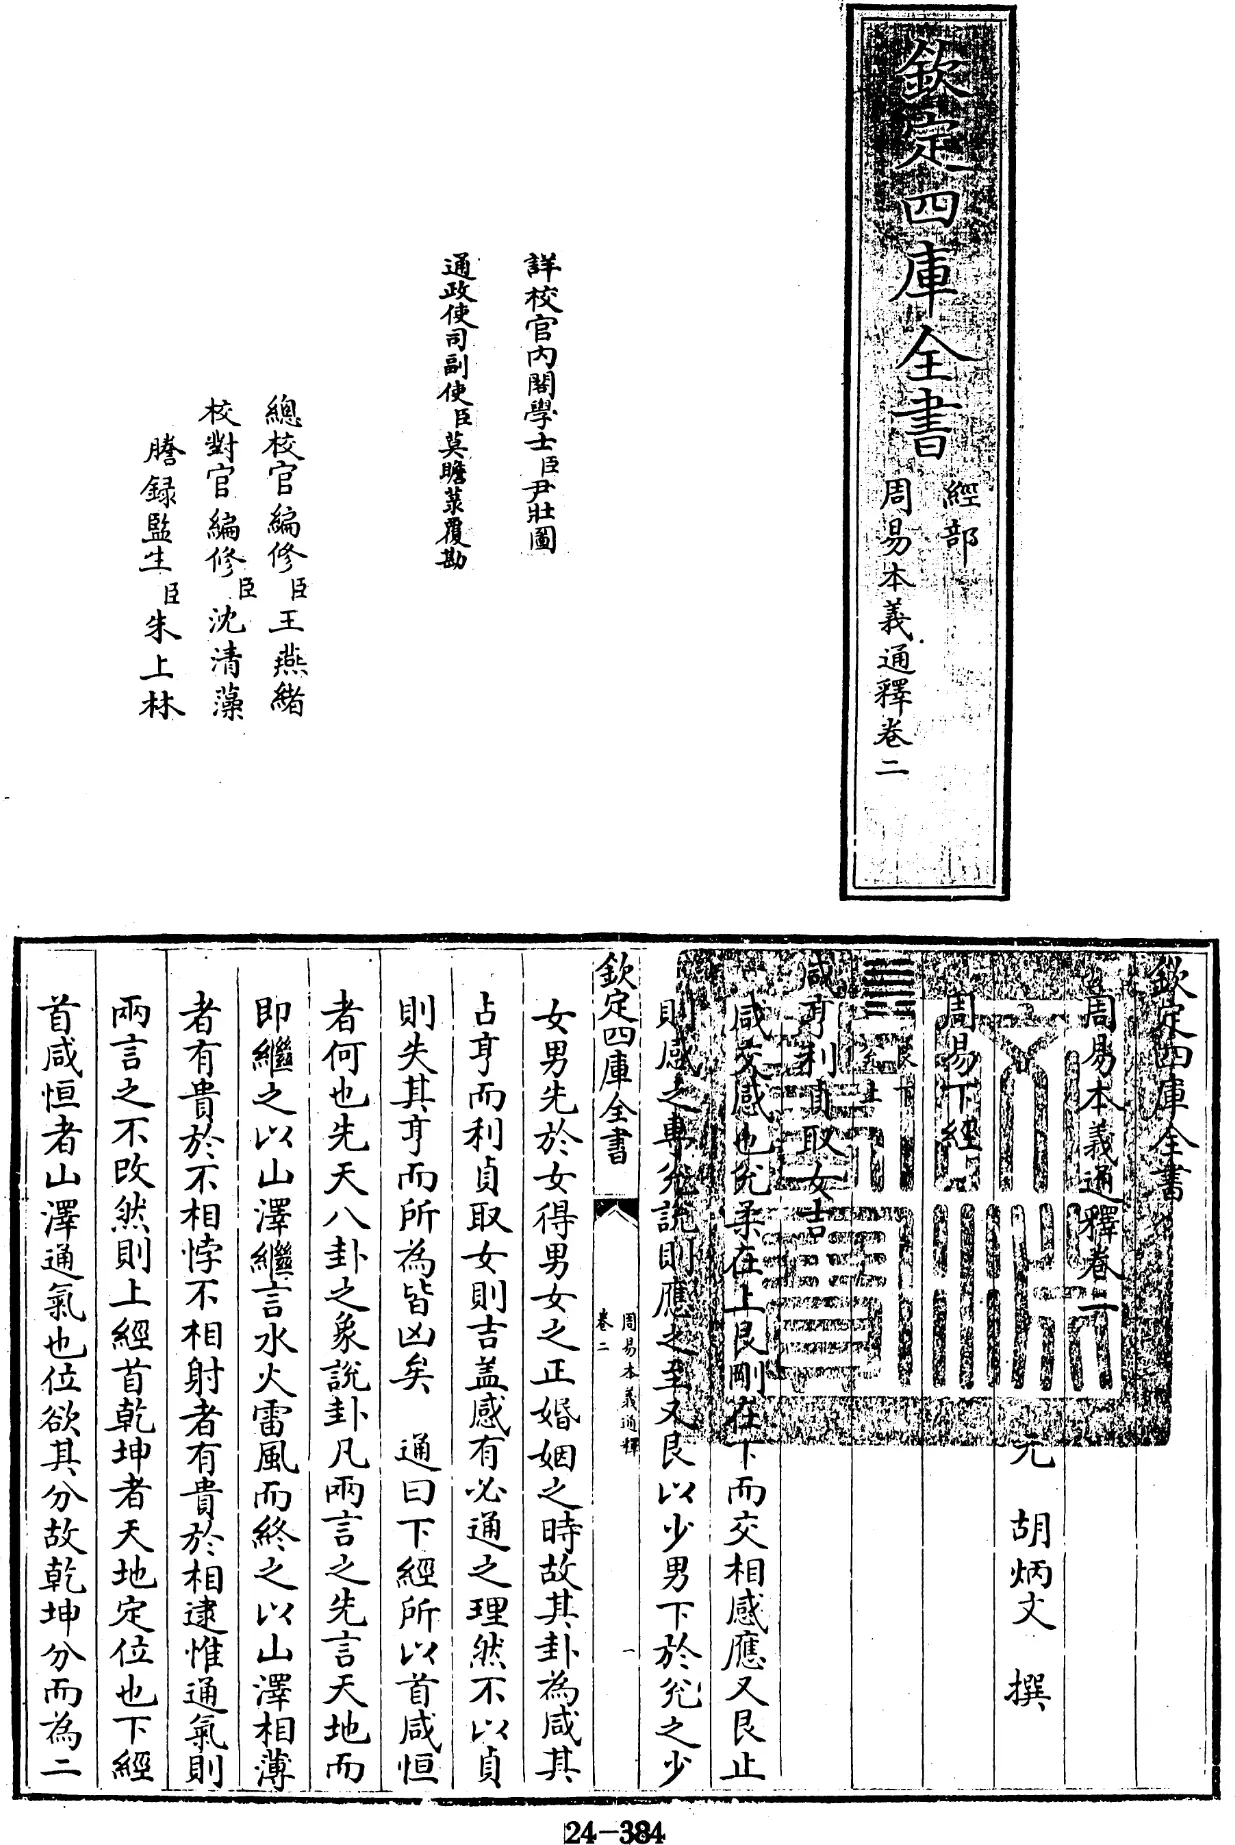 欽定四庫全書
經部
周易本義通釋卷二
詳校官內閣學士臣尹壯圖
通政使司副使臣莫瞻菉覆勘
總校官編修臣王燕緒
校對官編修臣沈清藻
謄録監生臣朱上林
欽定四庫全書
周易本義通釋卷二
元 胡炳文 撰
周易下經
䷞ 艮下
兌上
咸亨利貞取女吉
咸交感也兊柔在上艮剛在下而交相感應又艮止
則感之專兊說則應之至又艮以少男下於兊之少
欽定四庫全書
周易本義通釋
卷二
一
女男先於女得男女之正婚姻之時故其卦為咸其
占亨而利貞取女則吉盖感有必通之理然不以貞
則失其亨而所為皆凶矣 通曰下經所以首咸恒
者何也先天八卦之象說卦凡兩言之先言天地而
即繼之以山澤繼言水火雷風而終之以山澤相薄
者有貴於不相悖不相射者有貴於相逮惟通氣則
兩言之不改然則上經首乾坤者天地定位也下經
首咸恒者山澤通氣也位欲其分故乾坤分而為二
24-384